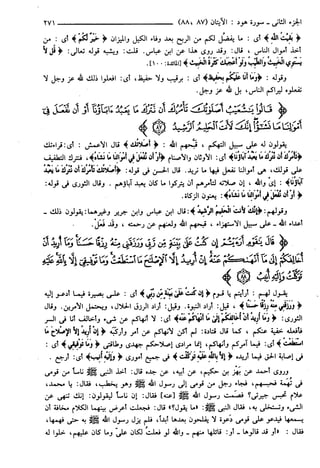 الجزء الثاني - سورة هود : الآيتان (٨٧ ، ٨٨) ٢٧١
﴿بقيت الله﴾ أي : ما يفضل لكم من الربح بعد وفاء الكيل والميزان ﴿خير لكم﴾ أي : من
أخذ أموال الناس ، قال : وقد روى هذا عن ابن عباس. قلت: ويشبه قوله تعالى: ﴿قل لا
يستوي الخبيث والطيب ولو أعجبك كثرة الخبيث﴾ [المائدة: ١٠٠].
وقوله : ﴿وما أنا عليكم بحفيظ﴾ أي : برقيب ولا حفيظ، أي: افعلوا ذلك لله عز وجل لا
تفعلوه ليراكم الناس، بل لله عز وجل.
﴿قالوا يشعيب أصلوتك تأمرك أن نترك ما يعبد ءاباؤنا أو أن نفعل في
أموالنا ما نشؤا إنك لأنت الحليم الرشيد﴾
يقولون له على سبيل التهكم ، قبحهم الله : ﴿أصلاتك﴾ قال الأعمش : أي: قراءتك
﴿تأمرك أن نترك ما يعبد ءاباؤنا﴾ أي: الأوثان والأصنام ﴿أو أن نفعل في أموالنا ما نشاء﴾، فنترك التطفيف
على قولك، هي أموالنا نفعل فيها ما نريد. قال الحسن في قوله: ﴿أصلاتك تأمرك أن نترك ما يعبد
ءاباؤنا﴾ : إي والله ، إن صلاته لتأمرهم أن يتركوا ما كان يعبد آباؤهم . وقال الثوري في قوله:
﴿أو أن نفعل في أموالنا ما نشاء﴾: يعنون الزكاة.
وقولهم: ﴿إنك لأنت الحليم الرشيد﴾: قال ابن عباس وابن جرير وغيرهما: يقولون ذلك -
أعداء الله - على سبيل الاستهزاء ، قبحهم الله ولعنهم عن رحمته ، وقد فعل.
﴿قال يقوم أرءيتم إن كنت على بينة من ربي ورزقني منه رزقا حسنا وما أريد أن
أخالفكم إلى ما أنهىكم عنه إن أريد إلا الإصلح ما استطعت وما توفيقي إلا بالله عليه
توكلت وإليه أنيب﴾
يقول لهم : أرأيتم يا قوم ﴿إن كنت على بينة من ربي﴾ أي : على بصيرة فيما أدعو إليه
﴿ورزقني منه رزقا حسنا﴾، قيل: أراد النبوة. وقيل: أراد الرزق الحلال، ويحتمل الأمرين. وقال
الثوري: ﴿وما أريد أن أخالفكم إلى ما أنهاكم عنه﴾ أي: لا أنهاكم عن شيء وأخالف أنا في السر
فأفعله خفية عنكم ، كما قال قتادة: لم أكن لأنهاكم عن أمر وأركبه ﴿إن أريد إلا الإصلاح ما
استطعت﴾ أي : فيما آمركم وأنهاكم، إنما مرادي إصلاحكم جهدي وطاقتي ﴿وما توفيقي﴾ أي :
في إصابة الحق فيما أريده ﴿إلا بالله عليه توكلت﴾ في جميع أموري ﴿وإليه أنيب﴾ أي: أرجع .
وروى أحمد عن بهز بن حكيم، عن أبيه، عن جده قال: أخذ النبي ﷺ ناسا من قومي
في تهمة فحبسهم، فجاء رجل من قومي إلى رسول الله ﷺ وهو يخطب، فقال: يا محمد،
علام تحبس جيرتي؟ فصمت رسول الله ﷺ [عنه] فقال: إن ناسا ليقولون: إنك تنهى عن
الشيء وتستخلي به، فقال النبي ﷺ: «ما يقول؟» قال: فجعلت أعرض بينهما الكلام مخافة أن
يسمعها فيدعو على قومي دعوة لا يفلحون بعدها أبدا، فلم يزل رسول الله ﷺ به حتى فهمها،
فقال : «أو قد قالوها - أو: قائلها منهم - والله لو فعلت لكان علي وما كان عليهم، خلوا له